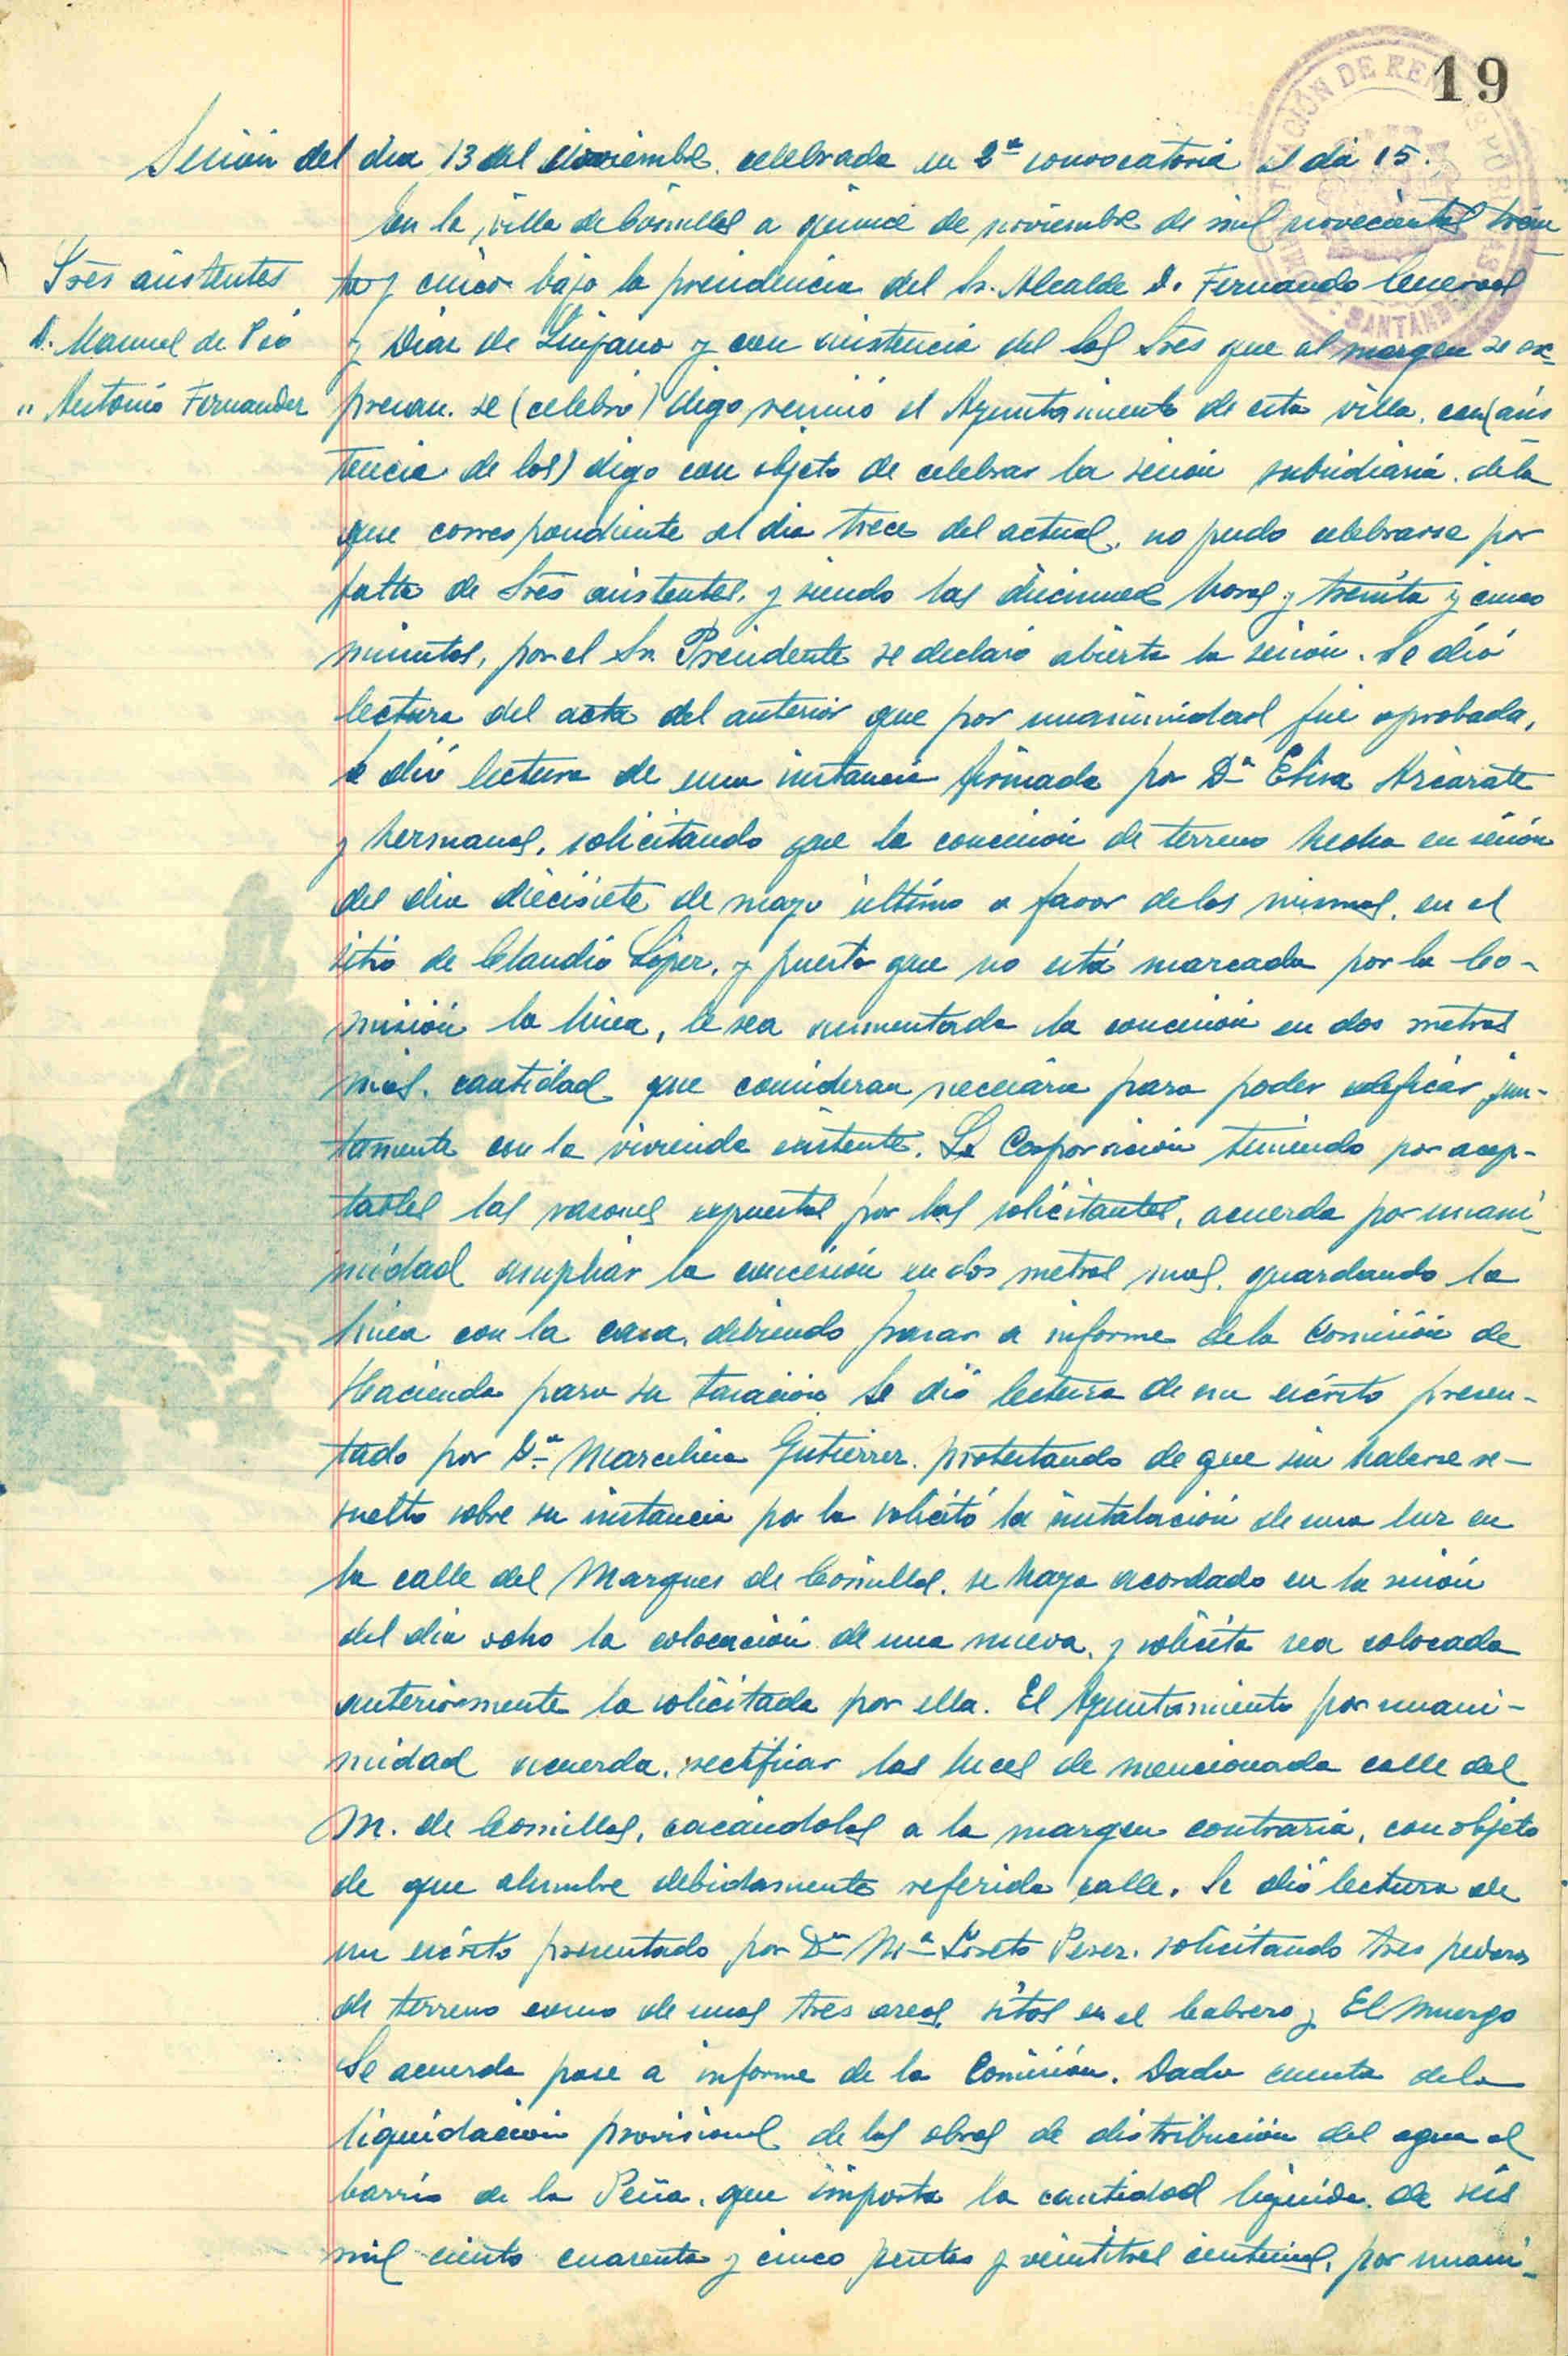 19
ADMINISTRACIÓN DE RENTAS PÚBLICAS · SANTANDER
Sesión del dia 13 del noviembre celebrada en 2ª convocatoria el dia 15.
En la villa de Comillas a quince de noviembre de mil novecientos trein
Sres asistentes
D. Manuel de Pió
" Antonio Fernandez
ta y cinco bajo la presidencia del Sr. Alcalde D. Fernando Generoso
y Diaz de Quijano y con asistencia del los Sres que al margen se ex-
presan. se (celebró) digo reunió el Ayuntamiento de esta villa, con (asis
tencia de los) digo con objeto de celebrar la sesión subsidiaria. de la
que correspondiente al dia trece del actual, no pudo celebrarse por
falta de Sres asistentes, y siendo las diecinueve horas y treinta y cinco
minutos, por el Sr. Presidente se declaró abierta la sesión. Se dió
lectura del acta del anterior que por unanimidad fué aprobada,
Se dió lectura de una instancia firmada por Dª Elisa Azcarate
y hermanos, solicitando que la concesión de terreno hecha en sesión
del dia diecisiete de mayo último a favor de los mismos, en el
sitio de Claudio López, y puesto que no está marcada por la Co-
misión la linea, le sea aumentada la concesión en dos metros
más, cantidad que consideran necesaria para poder edificar jun-
tamente con la vivienda existente. La Corporación teniendo por acep-
tables las razones expuestas por los solicitantes, acuerda por unani-
midad ampliar la concesión en dos metros mas, guardando la
linea con la casa, debiendo pasar a informe de la Comisión de
Hacienda para su tasación Se dió lectura de un escrito presen-
tado por Dª Marcelina Gutierrez. protestando de que sin haberse re-
suelto sobre su instancia por la solicitó la instalación de una luz en
la calle del Marques de Comillas, se haya acordado en la sesión
del dia ocho la colocación de una nueva, y solicita sea colocada
anteriormente la solicitada por ella. El Ayuntamiento por unani-
midad acuerda, rectificar las luces de mencionada calle del
M. de Comillas, sacándolas a la margen contraria, con objeto
de que alumbre debidamente referida calle. Se dió lectura de
un escrito presentado por Dª Mª Loreto Perez. solicitando tres pedazos
de terreno como de unas tres areas, sitos en el Cabrero y El Muergo
Se acuerda pase a informe de la Comisión. Dada cuenta de la
liquidación provisional de las obras de distribución del agua al
barrio de la Peña, que importa la cantidad liquida de seis
mil ciento cuarenta y cinco pestas y veintitres centimos, por unani-